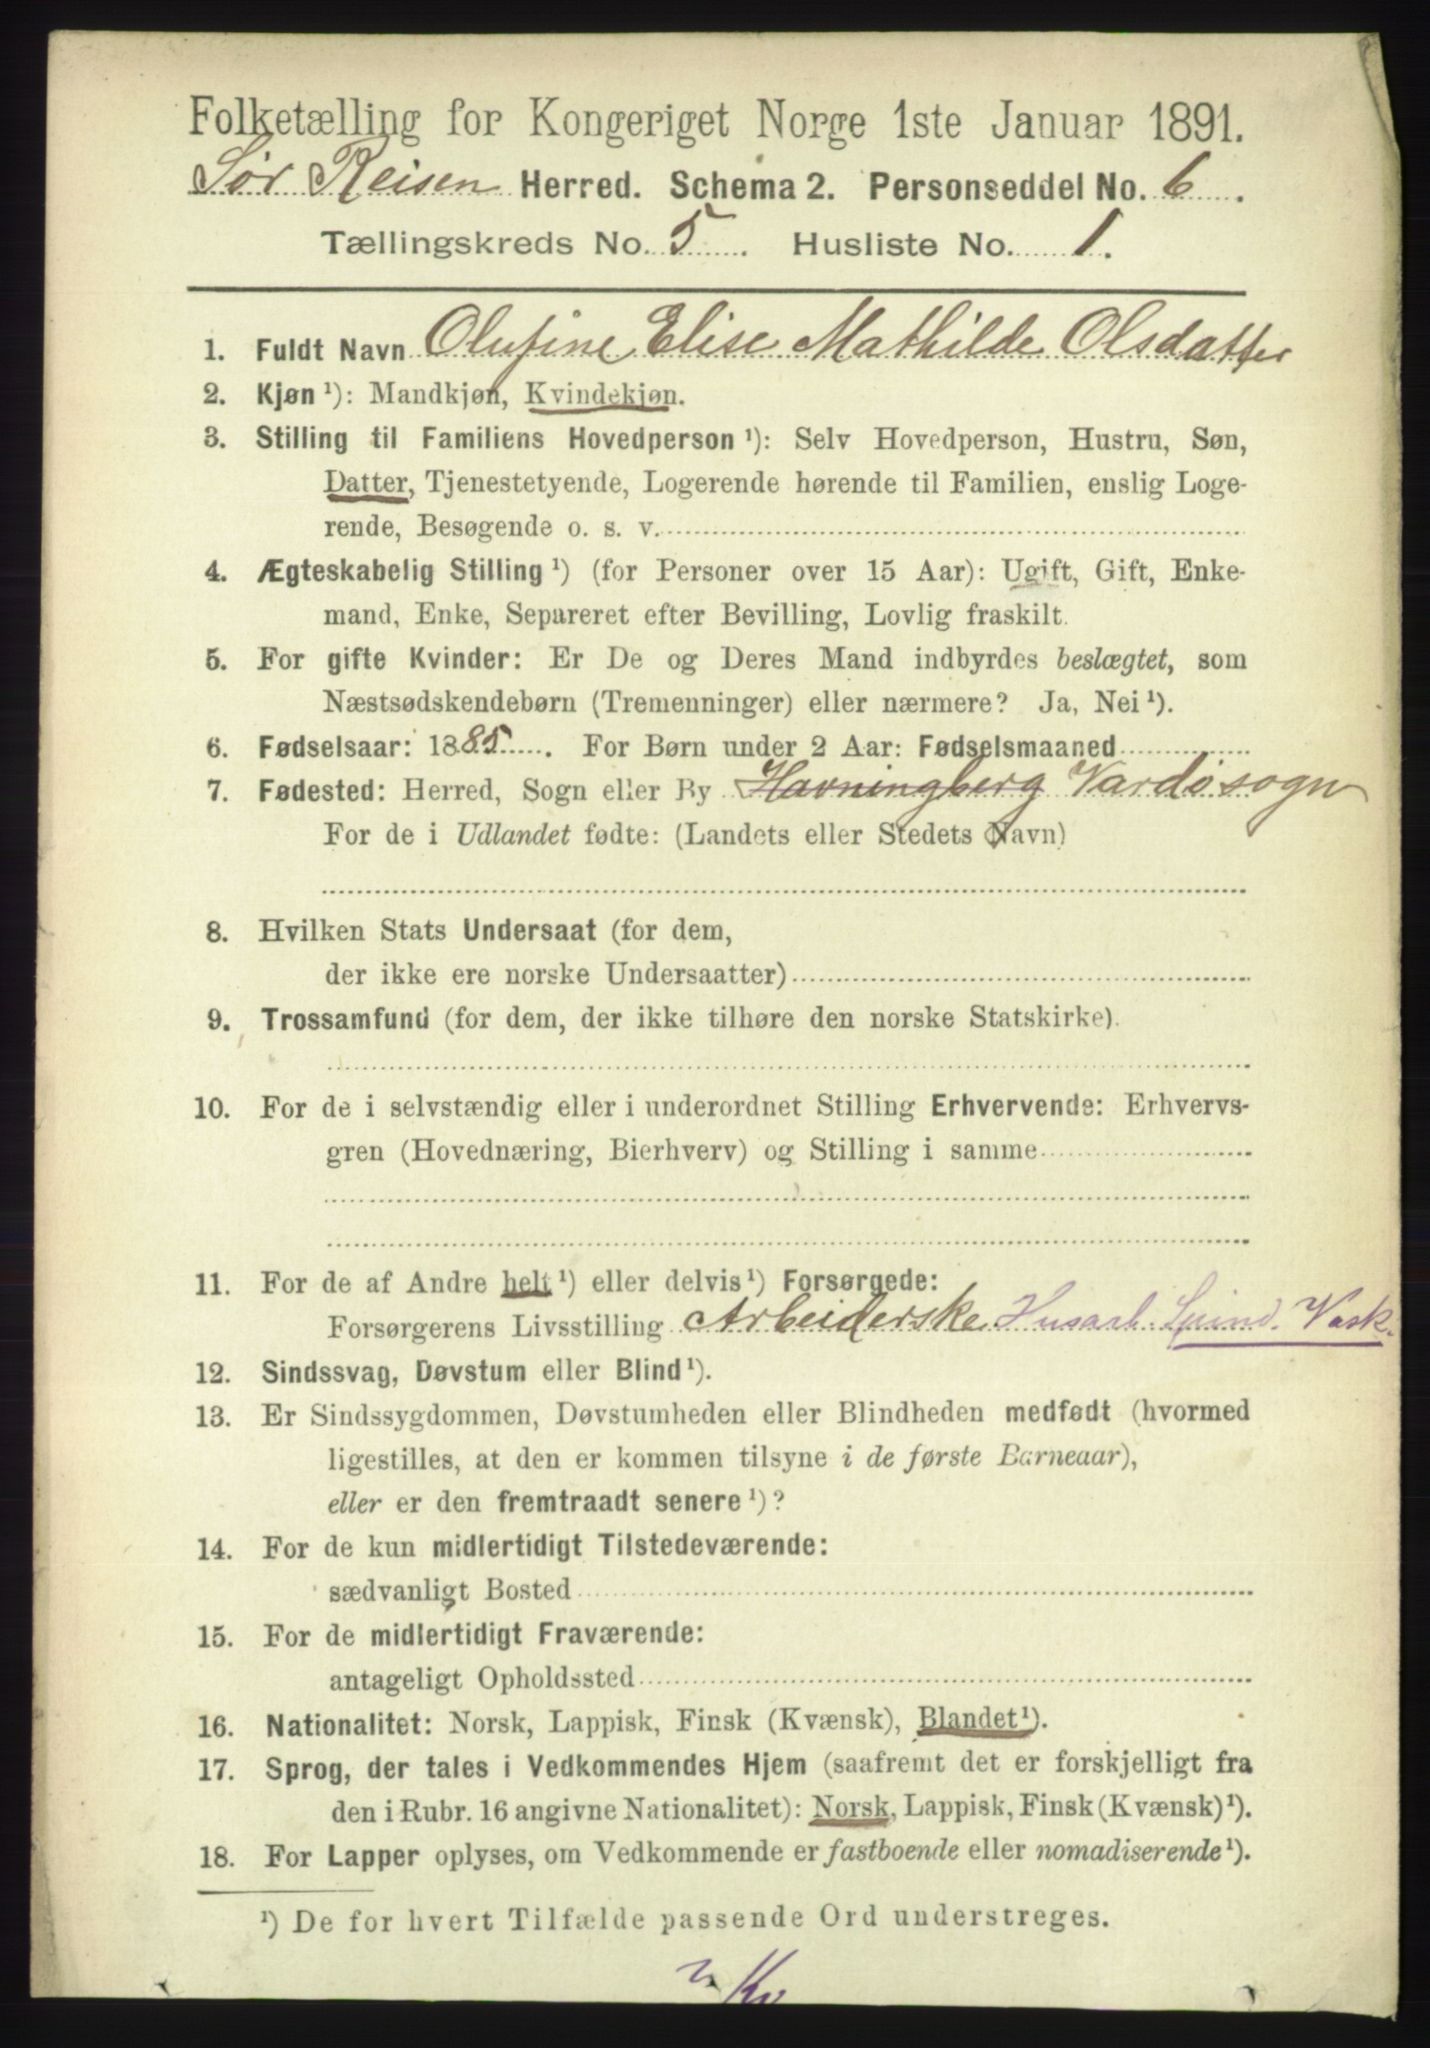 Folketælling for Kongeriget Norge 1ste Januar 1891.
Sør Reisen Herred. Schema 2. Personseddel No. 6.
Tællingskreds No. 5. Husliste No. 1.
1. Fuldt Navn Olufine Elise Mathilde Olsdatter
2. Kjøn ¹): Mandkjøn, Kvindekjøn.
3. Stilling til Familiens Hovedperson ¹): Selv Hovedperson, Hustru, Søn,
Datter, Tjenestetyende, Logerende hørende til Familien, enslig Loge-
rende, Besøgende o. s. v.
4. Ægteskabelig Stilling ¹) (for Personer over 15 Aar): Ugift, Gift, Enke-
mand, Enke, Separeret efter Bevilling, Lovlig fraskilt.
5. For gifte Kvinder: Er De og Deres Mand indbyrdes beslægtet, som
Næstsødskendebørn (Tremenninger) eller nærmere? Ja, Nei ¹).
6. Fødselsaar: 1885. For Børn under 2 Aar: Fødselsmaaned
7. Fødested: Herred, Sogn eller By Havningberg Vardø sogn
For de i Udlandet fødte: (Landets eller Stedets Navn)
8. Hvilken Stats Undersaat (for dem,
der ikke ere norske Undersaatter)
9. Trossamfund (for dem, der ikke tilhøre den norske Statskirke).
10. For de i selvstændig eller i underordnet Stilling Erhvervende: Erhvervs-
gren (Hovednæring, Bierhverv) og Stilling i samme
11. For de af Andre helt ¹) eller delvis ¹) Forsørgede:
Forsørgerens Livsstilling Arbeiderske Husarb. Spind. Vask.
12. Sindssvag, Døvstum eller Blind ¹).
13. Er Sindssygdommen, Døvstumheden eller Blindheden medfødt (hvormed
ligestilles, at den er kommen tilsyne i de første Barneaar),
eller er den fremtraadt senere ¹)?
14. For de kun midlertidigt Tilstedeværende:
sædvanligt Bosted
15. For de midlertidigt Fraværende:
antageligt Opholdssted
16. Nationalitet: Norsk, Lappisk, Finsk (Kvænsk), Blandet ¹).
17. Sprog, der tales i Vedkommendes Hjem (saafremt det er forskjelligt fra
den i Rubr. 16 angivne Nationalitet): Norsk, Lappisk, Finsk (Kvænsk) ¹).
18. For Lapper oplyses, om Vedkommende er fastboende eller nomadiserende ¹).
¹) De for hvert Tilfælde passende Ord understreges.
Kv